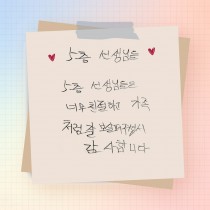 5층 선생님들
5층 선생님들은
너무 친절하고 가족
처럼 잘 보살펴주셔서
감사합니다